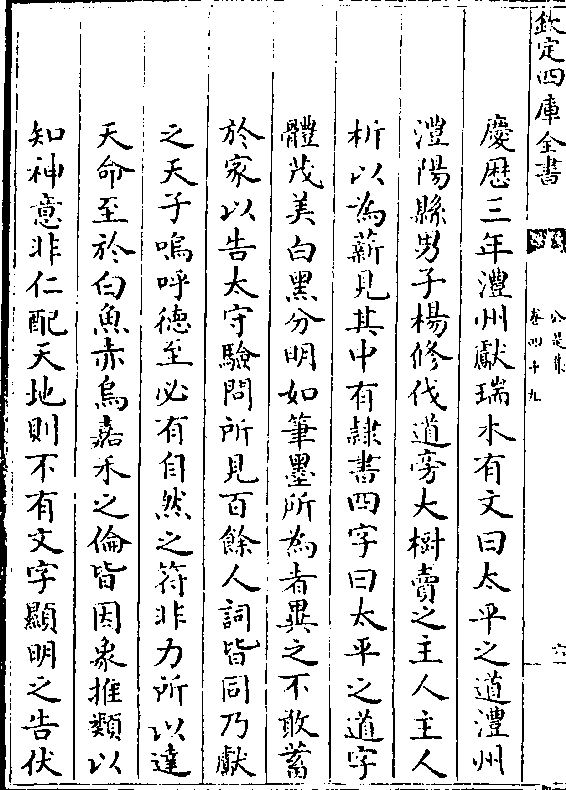 欽定四庫全書
公是集
卷四十九
六
慶厯三年澧州獻瑞木有文曰太平之道澧州
澧陽縣男子楊修伐道旁大樹賣之主人主人
析以為薪見其中有𨽻書四字曰太平之道字
體茂美白黑分明如筆墨所為者異之不敢蓄
於家以告太守驗問所見百餘人詞皆同乃獻
之天子嗚呼德至必有自然之符非力所以達
天命至於白魚赤烏嘉禾之倫皆因象推類以
知神意非仁配天地則不有文字顯明之告伏